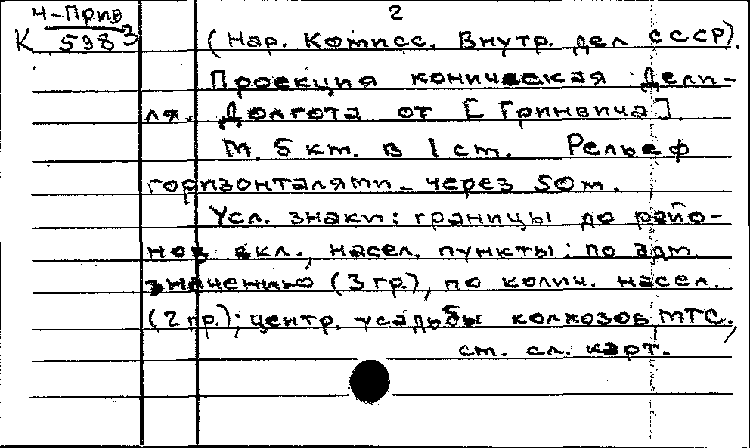 Ч-Прив 2
К 5383 (Нар. Комисс. Внутр. дел СССР).
Проекция коническая Дели-
ля. Долгота от [Гринвича].
М. 5 км. в 1 см. Рельеф
горизонталями - через 50 м.
Усл. знаки: границы до райо-
нов вкл., насел. пункты: по адм.
значению (3 гр.), по колич. насел.
(2 гр.); центр. усадьбы колхозов, МТС.,
см. сл. карт.